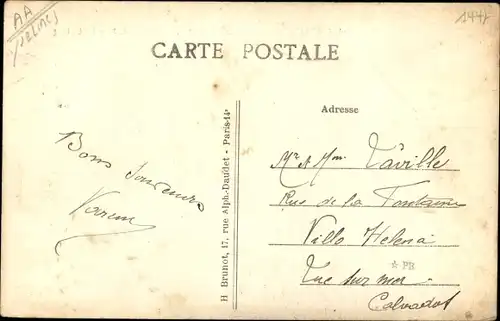 AA
1444
CARTE POSTALE
Adresse
H Brunot, 17, rue Alph-Daudet - Paris-14ᵉ
Bons Souvenirs
Mr & Mme Taville
Rue de la Fontaine
Villa Helena
Luc sur mer
☆ PB
Calvados